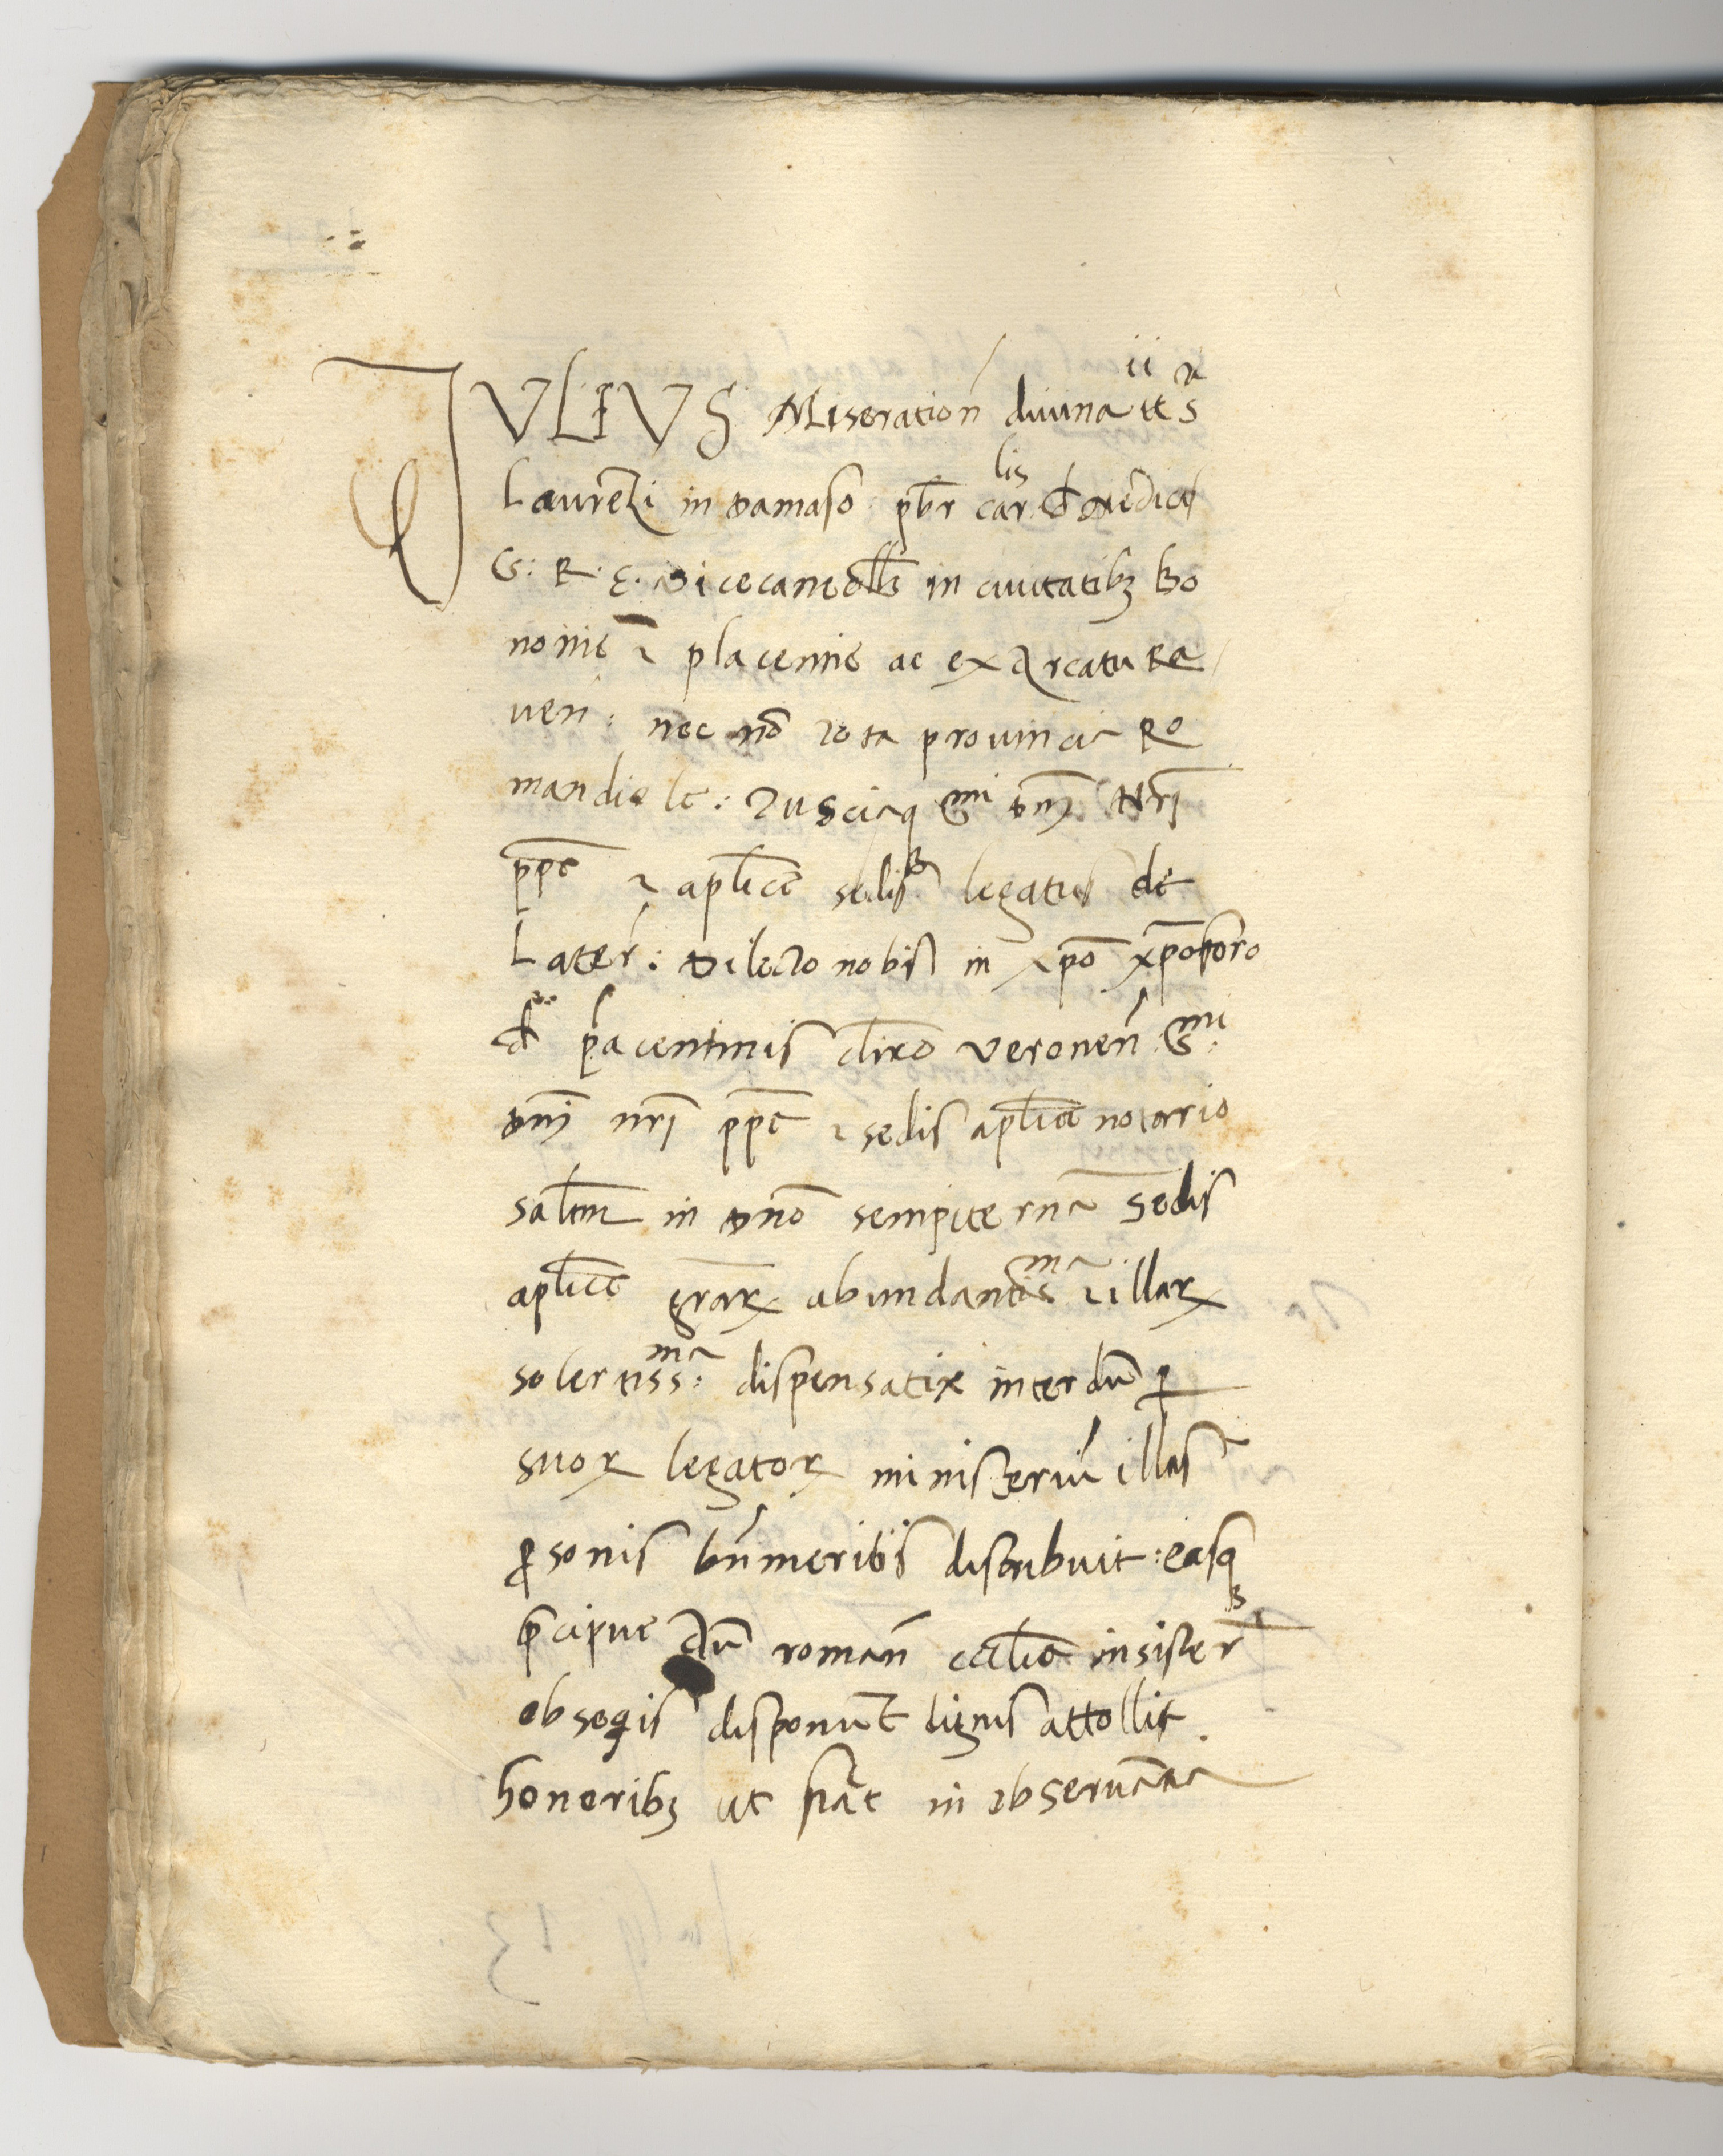 IVLIVS Miseration̄ diuina tt^ii s^a
Laurẽti in damaso pb̃r car^lis de medicis
S: R. E. Vicecancells in ciuitatibꝫ Bo
nonie ⁊ placentie ac exarcatu Ra
uen̄: nec nõ tota prouincia Ro
mandiole: Tusciaq S^mi dñi Nr̃i
ppe ⁊ aplice sedis legatus de
Later̄: Dilecto nobis in xpõ xpõforo
de pacentinis clico veronen̄ S^mi:
dñi nr̃i ppe ⁊ sedis aplice notario
saltm in dño sempiterna Sedis
aplice grar̃ꝝ abundantis^ma ⁊ illaꝝ
solertiss^ma: dispensatix interdũ ꝑ
suoꝝ legatoꝝ ministeriũ illas
ꝑsonis bñmeritis distribuit: easqꝫ
p̃cipue dũ roman̄ ecclie insister̃
obseqis disponũt dignis attollit
honoribꝫ ut fiãt in obseruãtia